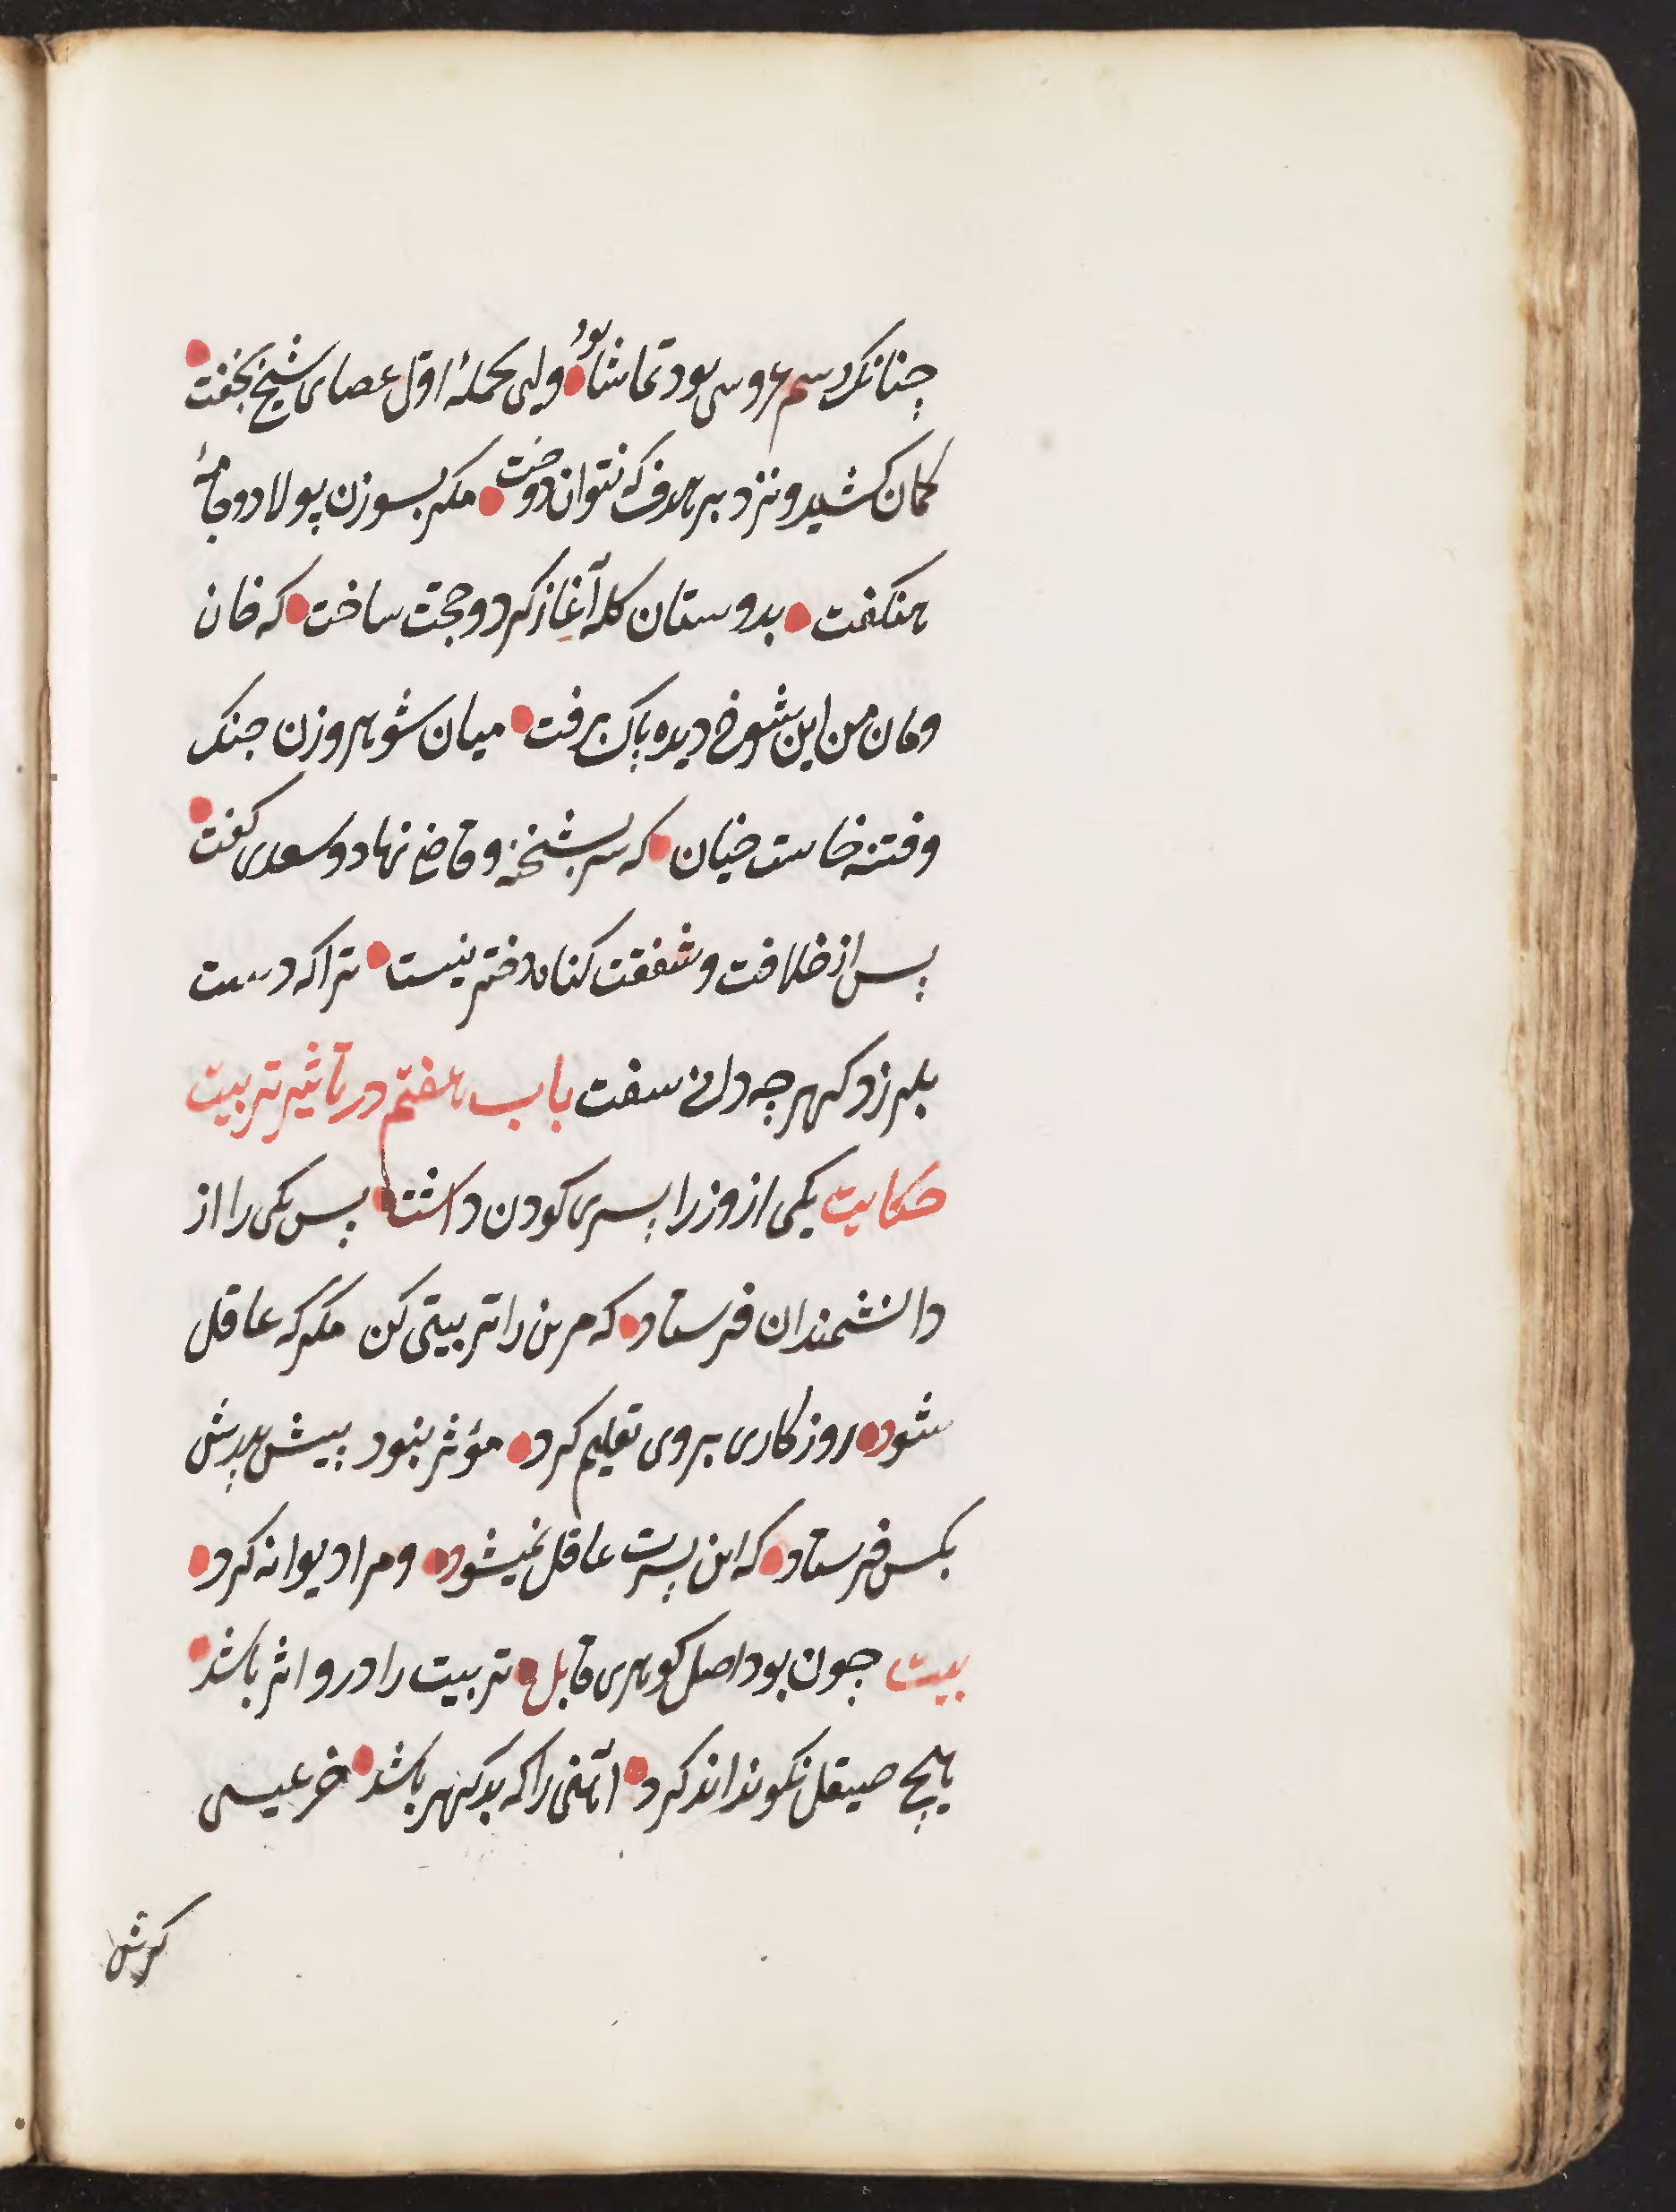 چنانک رسم عروسی بود تماشا بود ولی بحملۀ اوّل عصای شیخ بخفت
کمان کشید و نزد بر هدف که نتوان دوخت مکر بسوزن پولاد جامۀ
هنکفت بدوستان کله آغاز کرد و حجّت ساخت که خان
ومان من این شوخ دیده پاک برفت میان شوهر و زن جنک
و فتنه خاست چنان که سر بشحنه و قاضی نهاد و سعدی کفت
پس از خلافت و شفقت کناه دختر نیست تراکه دست
بلرزد کهر چه دانی سفت باب هفتم در تأثیر تربیت
حکایت یکی از وزرا پسری کودن داشت پس یکی را از
دانشمندان فرستاد که مرین را تربیتی کن مکر که عاقل
شود روزکاری بروی تعلیم کرد مؤثر نبود پیش پدرش
بکس فرستاد که این پسرت عاقل نمیشود و مرا دیوانه کرد
بیت چون بود اصل کوهری قابل تربیت را درو اثر باشد
هیچ صیقل نکو نداند کرد آهنی را که بدکهر باشد خر عیسی
کرش